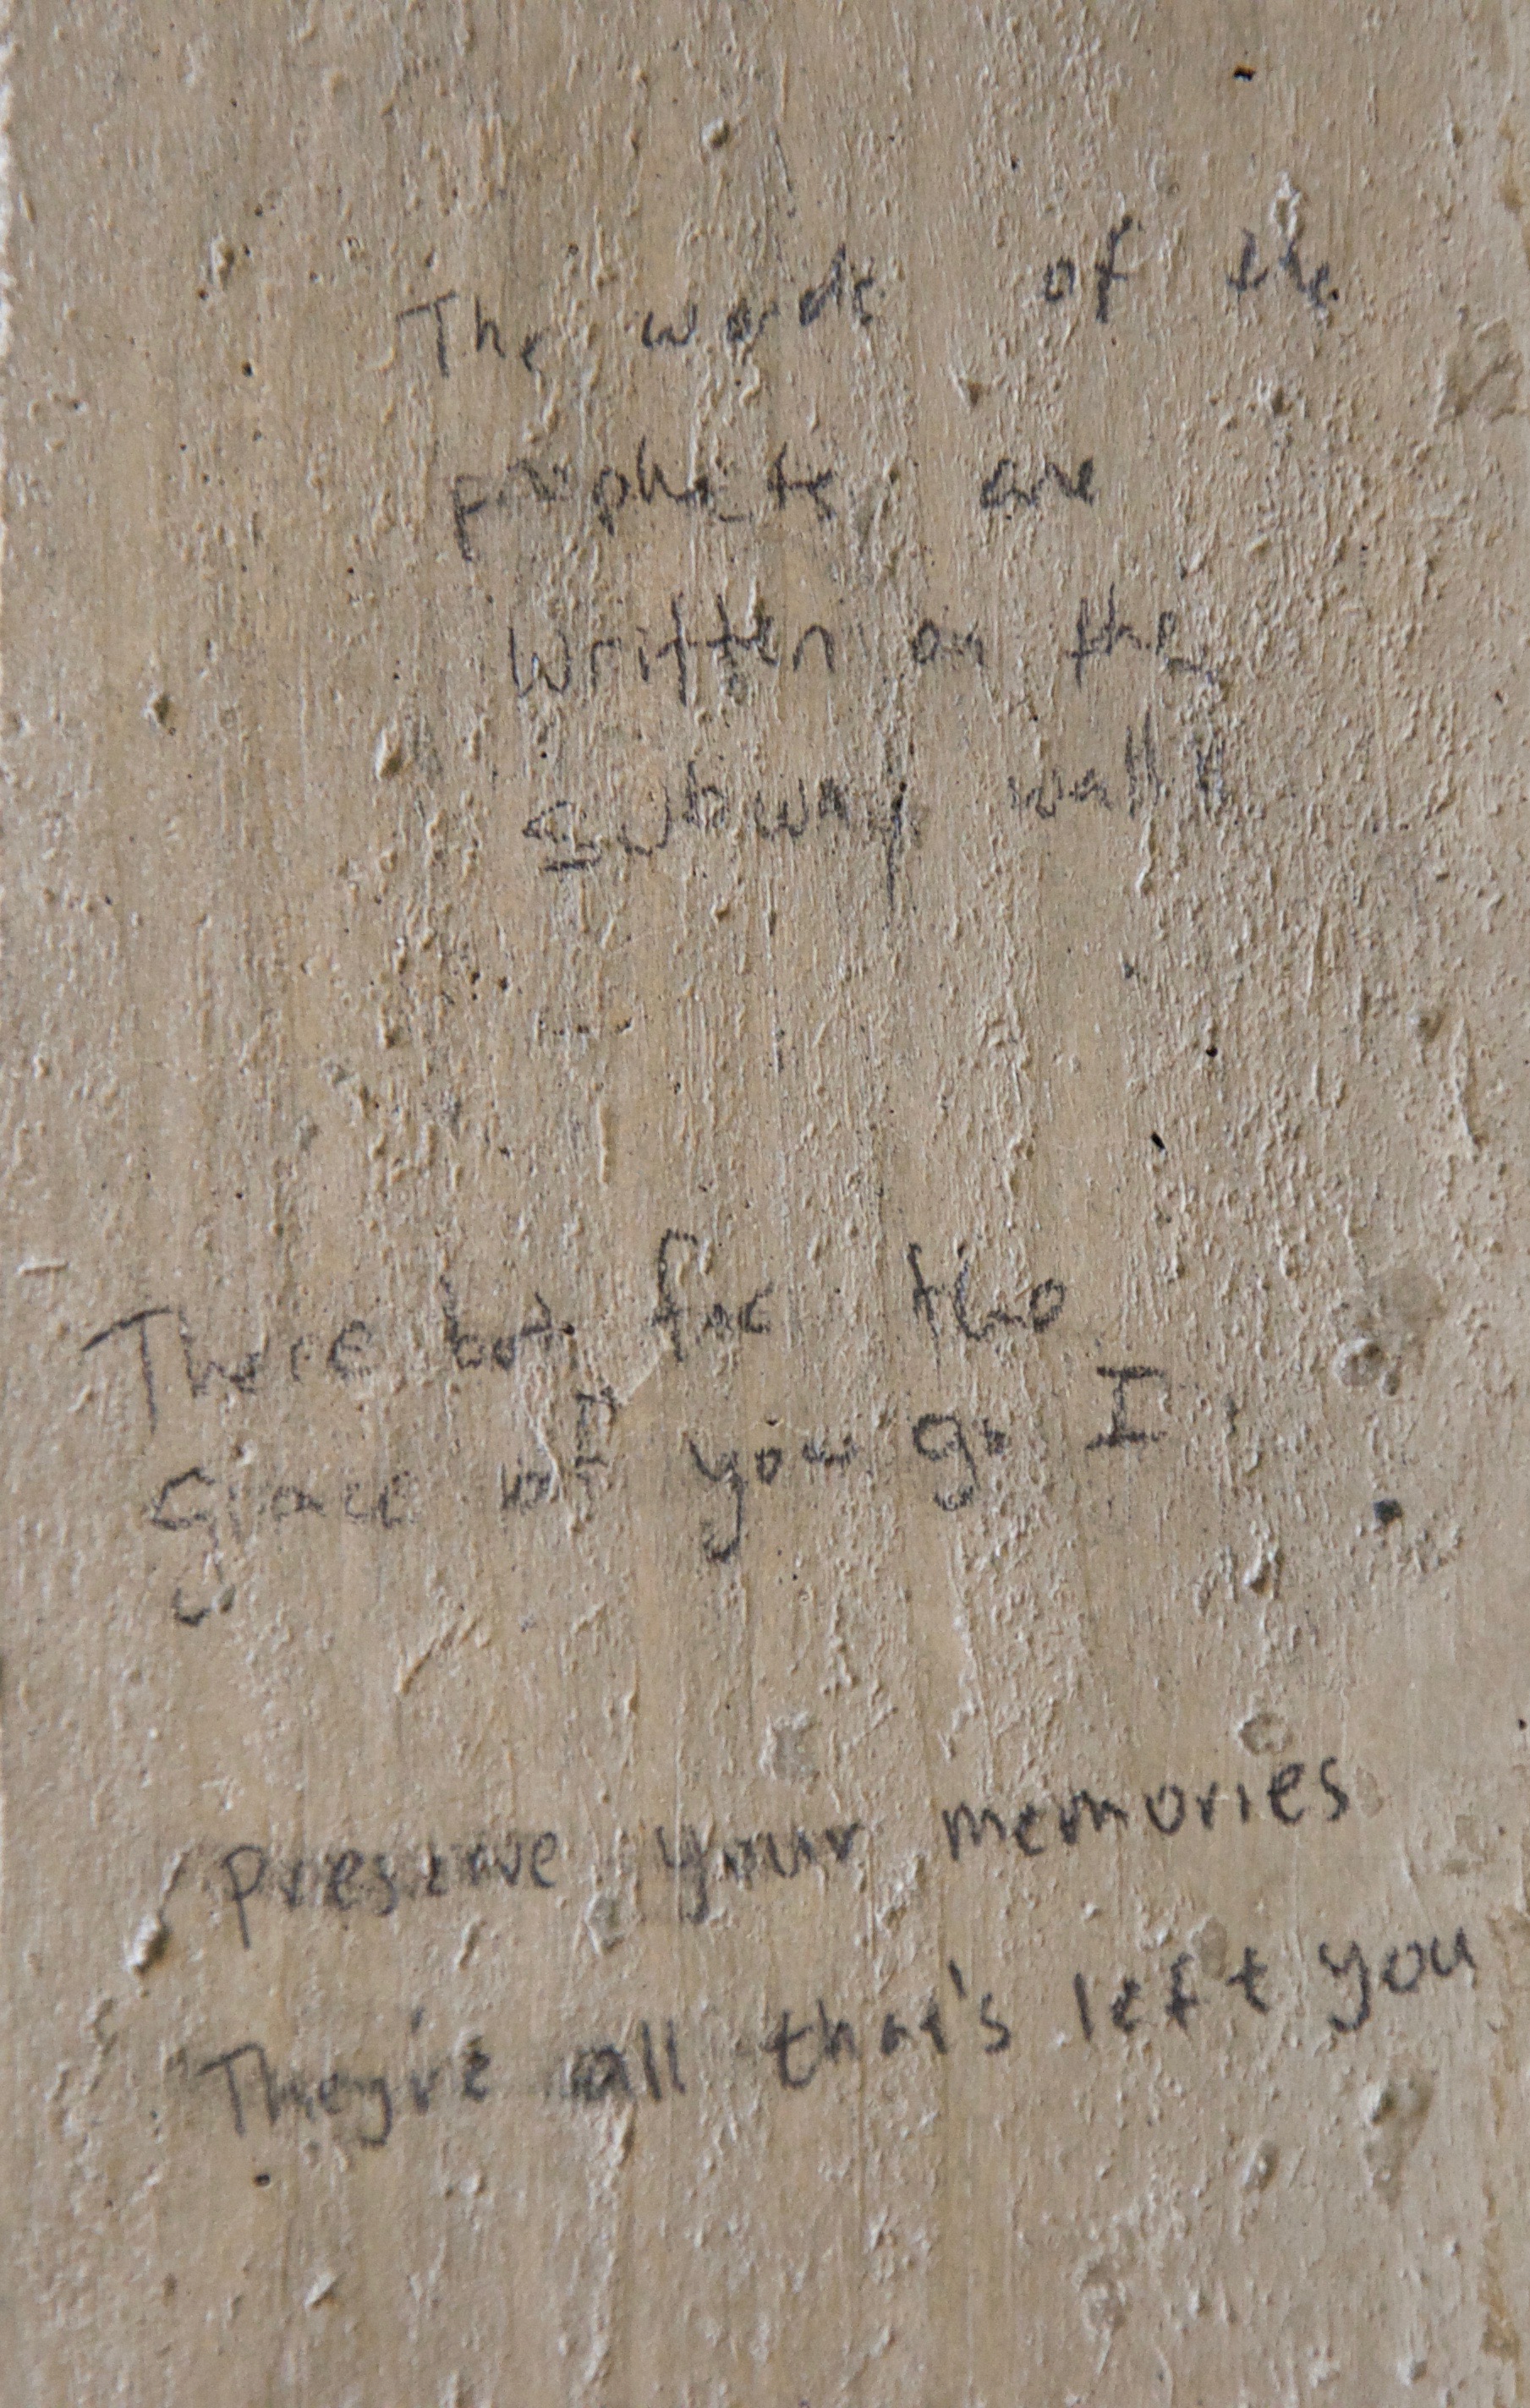 The words of the
prophets are
written on the
subway walls
There but for the
Grace of you go I
preserve your memories
They're all that's left you